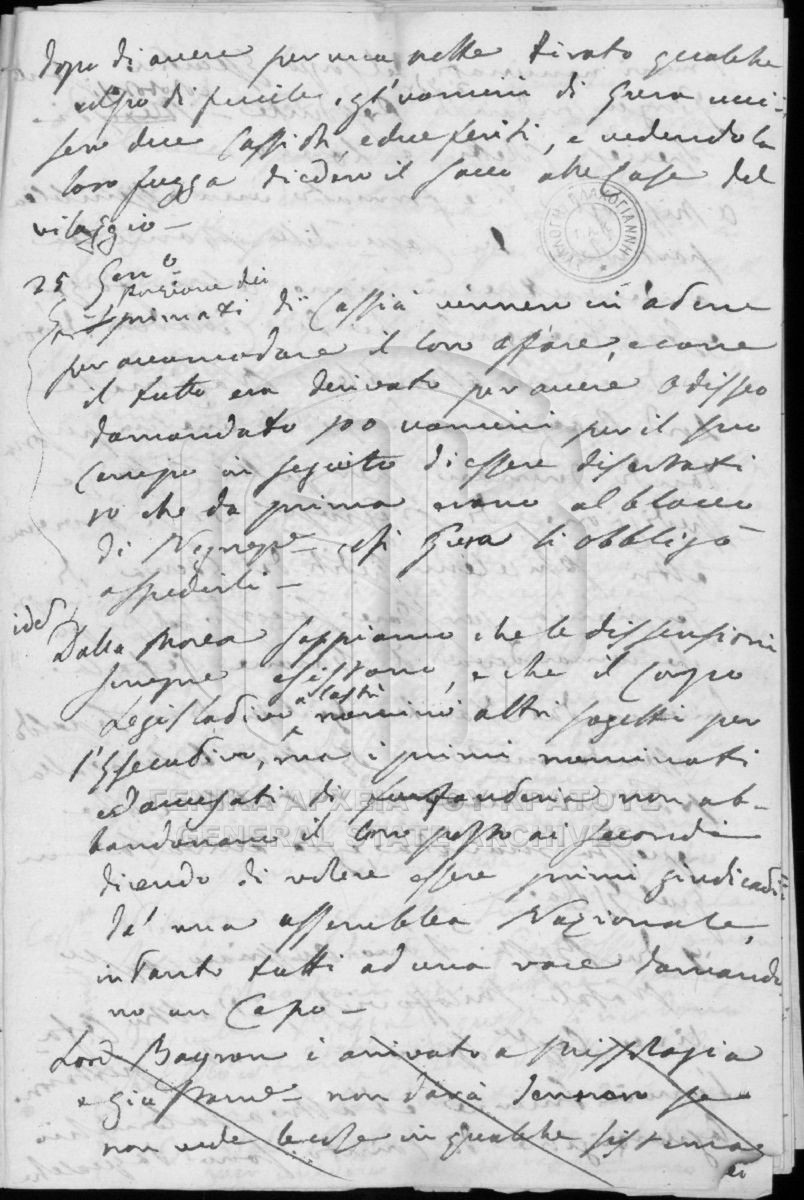 dopo di avere per una notte tirato qualche
colpo di fucile, gl'uomini di Gura ucci-
sero due Cassioti, e due feriti, e vedendo la
loro fugga diedero il sacco alle Case del
vilaggio —
25 Genº
porzione dei
primati di Cassia vennero in Adene
per accomodare il loro afare, e come
il tutto era derivato per avere Odisseo
damandato 100 uomini per il suo
Campo in seguito di essere disertati
che da prima erano al blocco
di Negrepte così Gura li obbligò
a spedirli —
idem
Dalla Morea sappiamo che le dissensioni
sempre esistano, e che il Corpo
a Castri
Legisladivo nominò altri sogetti per
l'Essecudivo, ma i primi nominati
ed accusati di non ab-
bandonano il loro posto ai secondi
dicendo di volere essere primi giudicadi
da una assemblea Nazionale,
intanto tutti ad una voce damanda
no un Capo —
Lord Bayron è arrivato a Missologia
e già non darà dennaro se
non vede le cose in qualche sistema
ΓΕΝΙΚΑ ΑΡΧΕΙΑ ΤΟΥ ΚΡΑΤΟΥΣ
GENERAL STATE ARCHIVES
ΒΛΑΧΟΓΙΑΝΝΗ